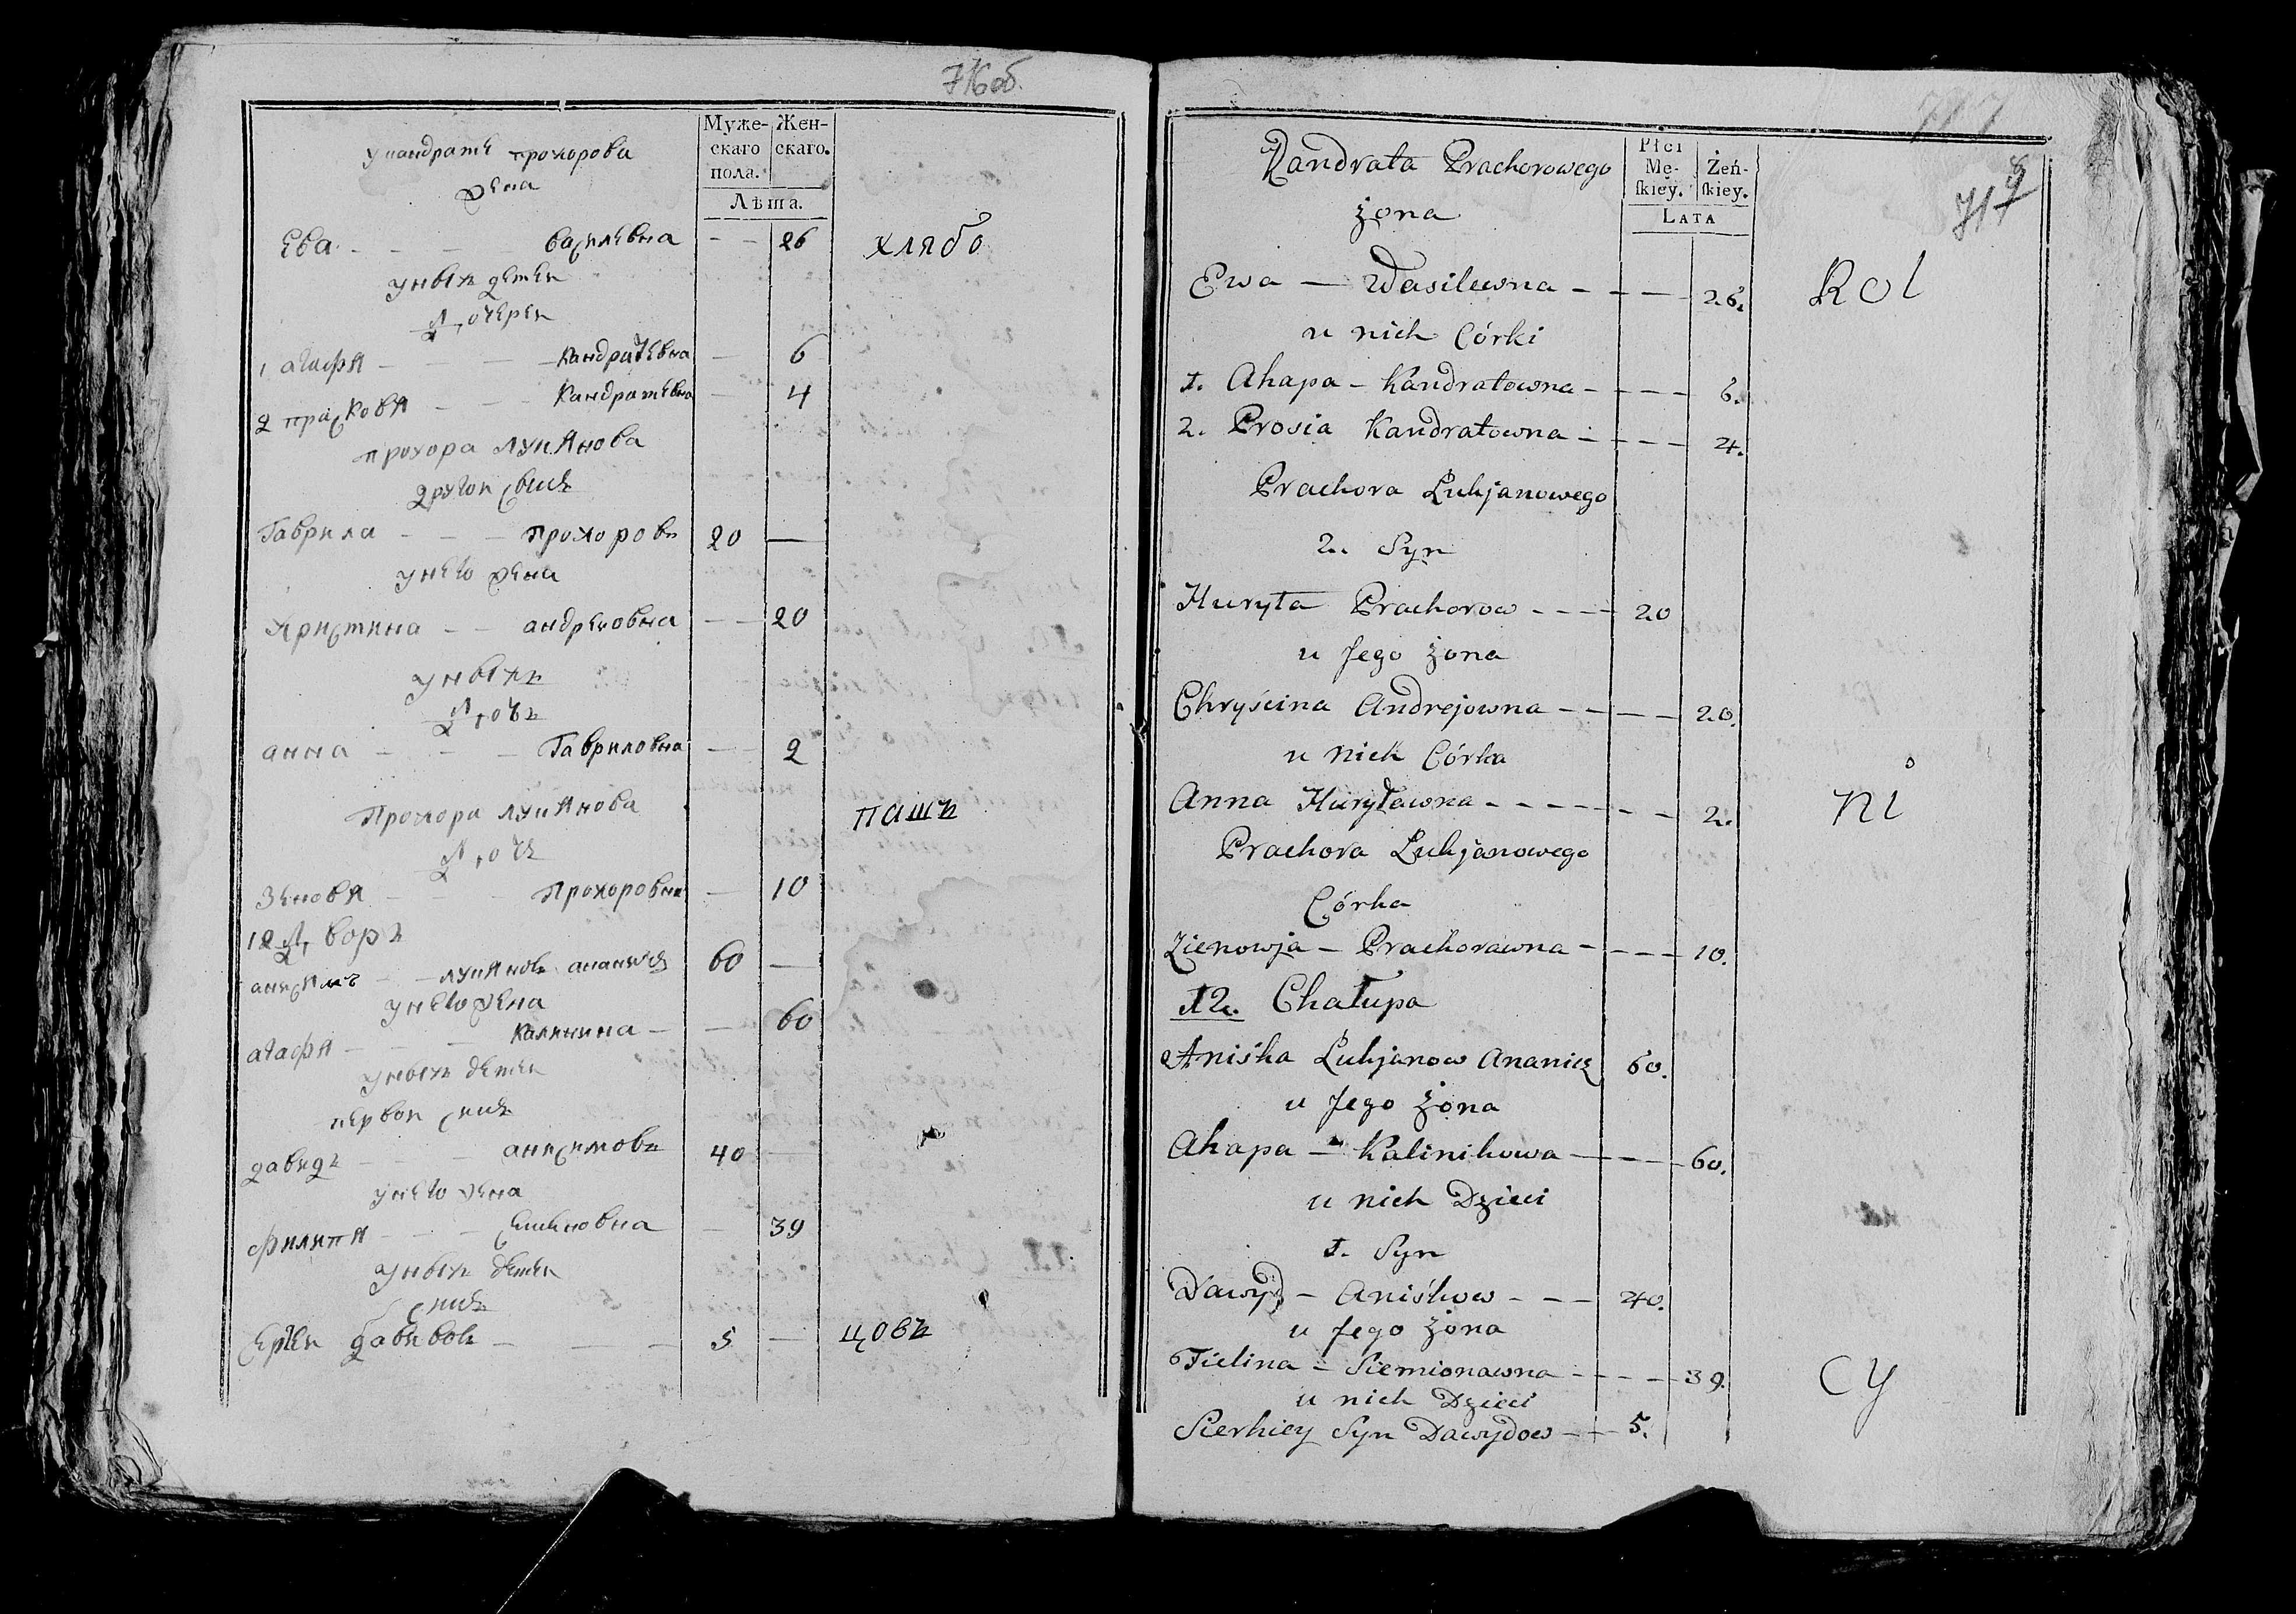 716 об.
Муже- Жен-
скаго скаго.
пола.
Лѣта.
укандрата прохорова
жена
Ева - - - василевна - - 26 хлябо
уныхъ детеи
дочереи
1 агафя - - - кандратевна - 6
2 прасковя - - - кандратевна - 4
прохора лукянова
другои сынъ
Гаврила - - - прохоровъ 20 —
унего жена
христина - - андреовна - - 20
уныхъ
дочъ
анна - - - Гавриловна - 2
Прохора лукянова пашъ
дочъ
Зеновя - - - Прохоровна - 10
12 дворъ
анисимъ - - лукяновъ 60 —
унего жена
агафя - - - калинина - - 60
уныхъ детеи
первои синъ
давидъ - - - анисимовъ 40 —
унего жена
филипя - - - семеновна - 39
уныхъ детеи
синъ
сергеи давидовъ - - - 5 — цовъ
717
Płci
Mę- Żeń-
skiey. skiey.
LATA
Kandrata Prachorowego
żona
Ewa — Wasilewna - - - - 26. Rol
u nich Córki
1. Ahapa - Kandratowna - - - - 6.
2. Prosia Kandratowna - - - - 4.
Prachora Łukjanowego
2. Syn
Huryła Prachorow - - - - 20
u Jego żona
Chryścina Andrejowna - - - - - 20.
u nich Córka
Anna Huryławna - - - - - - - 2. ni
Prachora Łukjanowego
Córka
Zienowja - Prachorawna - - - - 10.
12. Chałupa
Aniśka Łukjanow Ananicz 60.
u Jego żona
Ahapa - Kalinikowa - - - - 60.
u nich Dzieci
1. Syn
Dawyd - Aniśkow - - - 40.
u Jego żona
Fielina - Siemionawna - - - - 39. cy
u nich Dzieci
Sierhiey Syn Dawydow - - 5.